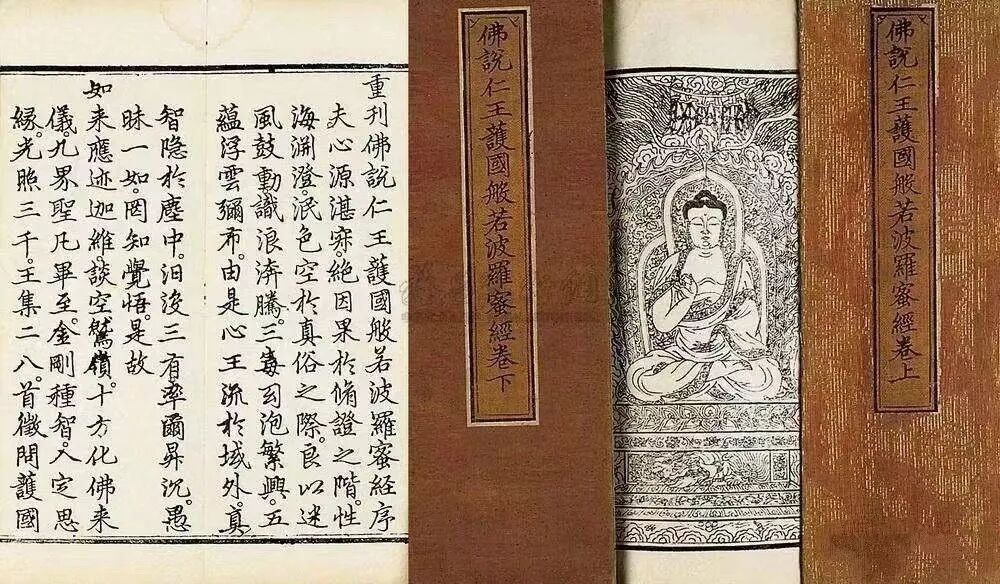 佛說仁王護國般若波羅蜜經卷上
佛說仁王護國般若波羅蜜經卷下
重刊佛說仁王護國般若波羅蜜經序
夫心源湛寂。絕因果於脩證之階。性
海淵澄。泯色空於真俗之際。良以迷
風鼓動。識浪渀騰。三毒幻泡繁興。五
蘊浮雲彌布。由是心王流於域外。真
智隐於塵中。汨沒三有。率爾昇沉。愚
昧一如。罔知覺悟。是故
如来應迹迦維。談空鷲嶺。十方化佛来
儀。九界聖凡畢至。金剛種智。入定思
緣。光照三千。王集二八。首徵問護國